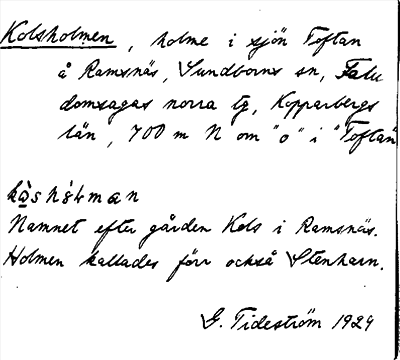 Kolsholmen, holme i sjön Toftan
å Ramsnäs, Sundborns sn, Falu
domsagas norra tg, Kopparbergs
län, 700 m N om "o" i "Toftan
Namnet efter gården Kols i Ramsnäs.
Holmen kallades förr också Stenharn.
G. Tideström 1929